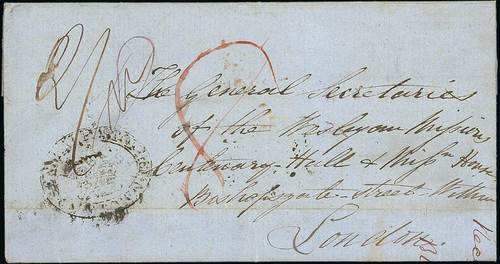 2/
8
The General Secretaries
of the Wesleyan Missions
Centenary Hall & Missn House
Bishopsgate Street Within
London